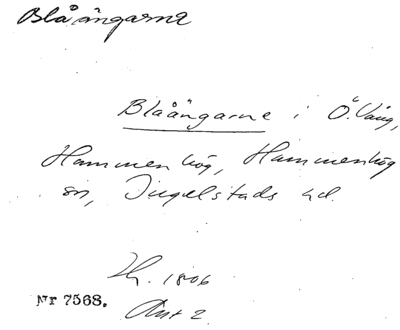 Blåängarna
Blaåängarne i Ö. Vång,
Hammenhög, Hammenhög
sn, Ingelstads hd.
1806
Nr 7568.
Akt 2